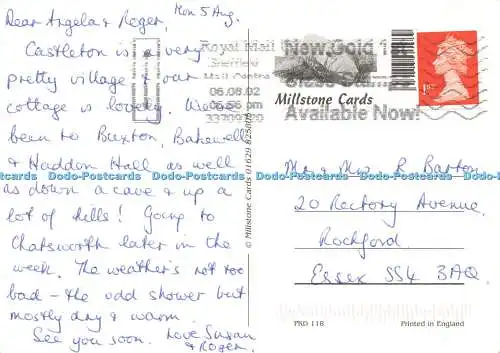 Dear Angela & Roger,
Mon 5 Aug.
Castleton is a very
pretty village & our
cottage is lovely. We've
been to Buxton, Bakewell
& Haddon Hall as well
as down a cave & up a
lot of hills! Going to
Chatsworth later in the
week. The weather's not too
bad – the odd shower but
mostly dry & warm.
See you soon. Love Susan
& Roger.
© Millstone Cards 01629 825008
Royal Mail
Sheffield
Mail Centre
06.08.02
06:56 pm
33709020
New Gold
Available Now!
Millstone Cards
1st
Mr & Mrs R Barton
20 Rectory Avenue,
Rochford,
Essex SS4 3AQ.
PRD 118
Printed in England
Dodo-Postcards Dodo-Postcards Dodo-Postcards Dodo-Postcards Dodo-Postcards Dodo-Postcards